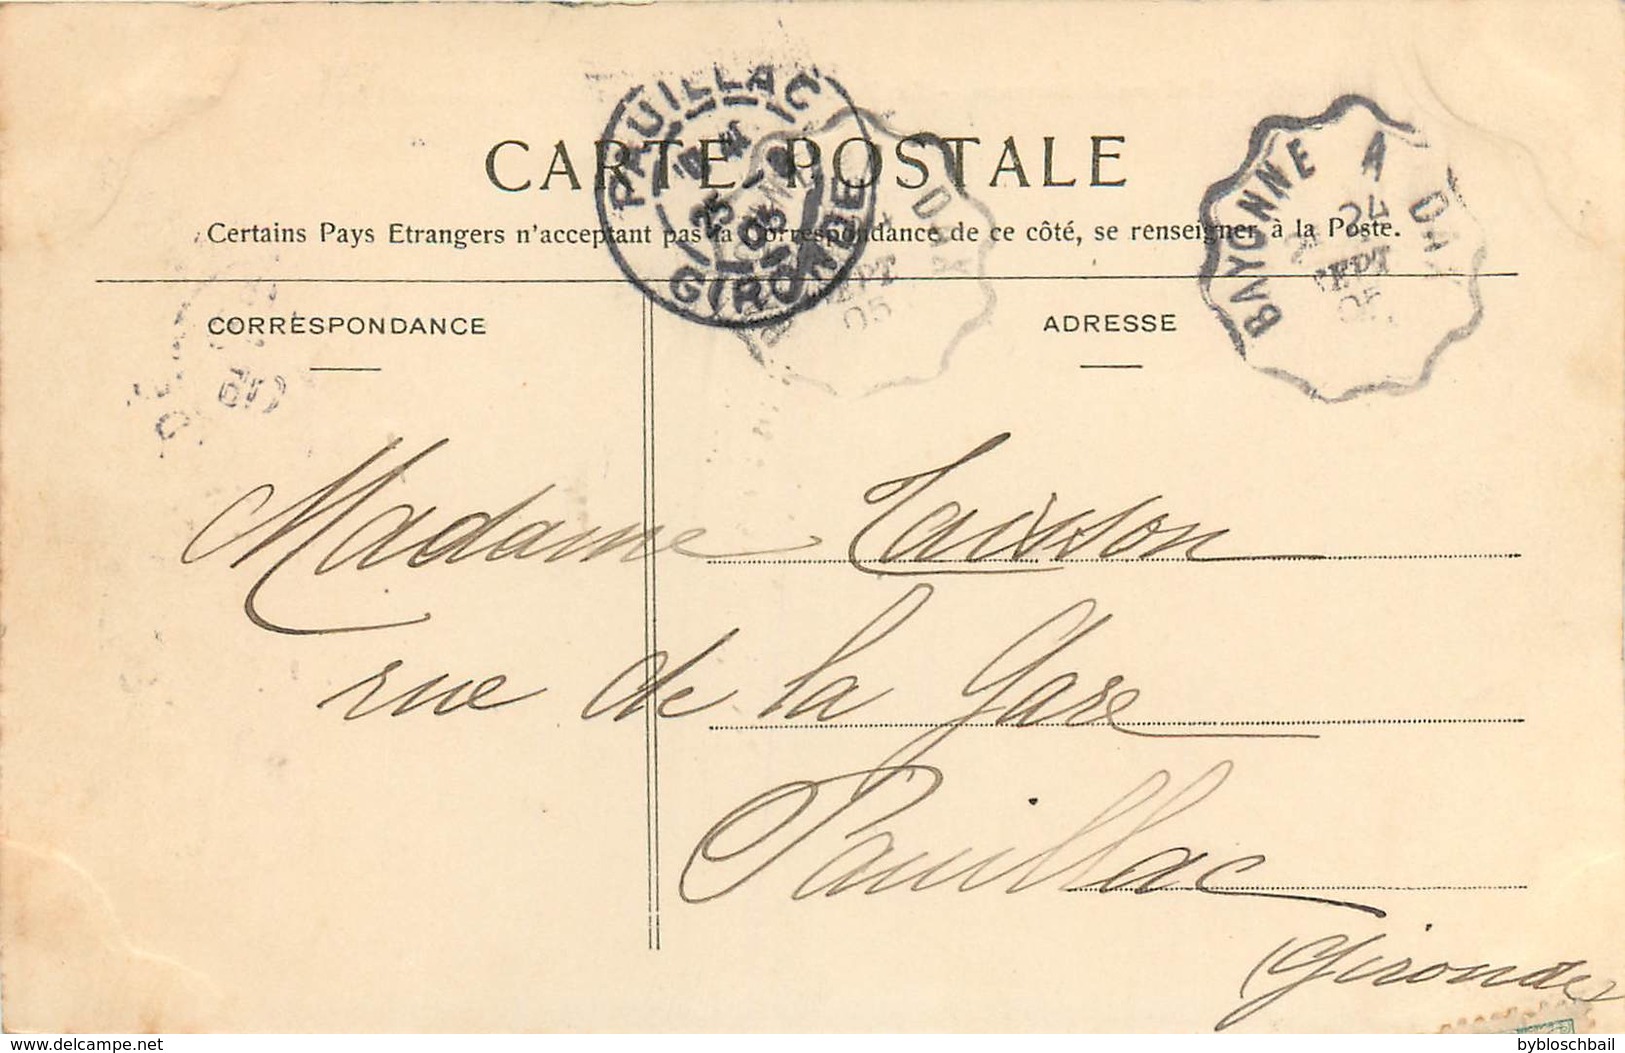 CARTE POSTALE
Certains Pays Etrangers n'acceptant pas la Correspondance de ce côté, se renseigner à la Poste.
PAUILLAC
25
05
GIRONDE
BAYONNE A DAX
24
SEPT
05
CORRESPONDANCE
ADRESSE
Madame
rue de la Gare
Pauillac
Gironde
delcampe.net
bybloschbail